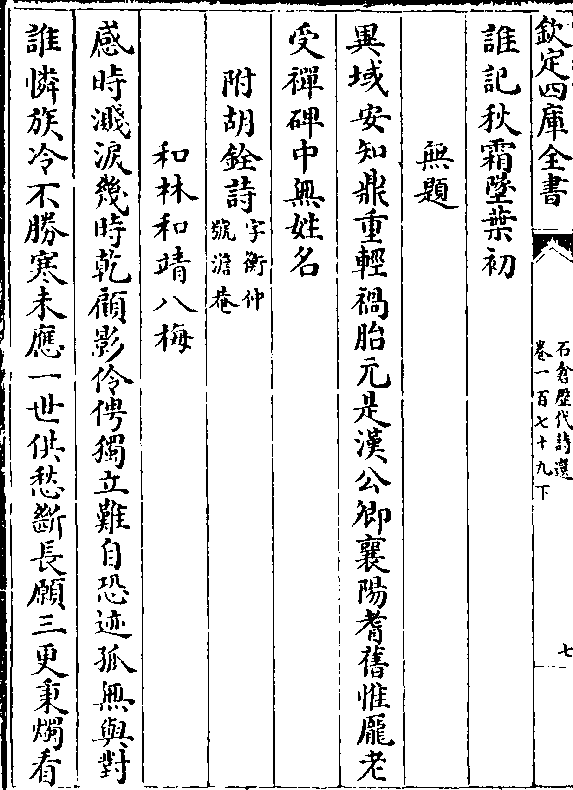 欽定四庫全書
石倉歷代詩選
卷一百七十九下
七
誰記秋霜墜葉初
無題
異域安知鼎重輕禍胎元是漢公卿襄陽耆舊惟龎老
受禪碑中無姓名
附胡銓詩字衡仲
號澹菴
和林和靖八梅
感時濺淚幾時乾顧影伶俜獨立難自恐迹孤無與對
誰憐族冷不勝寒未應一世供愁斷長願三更秉燭看